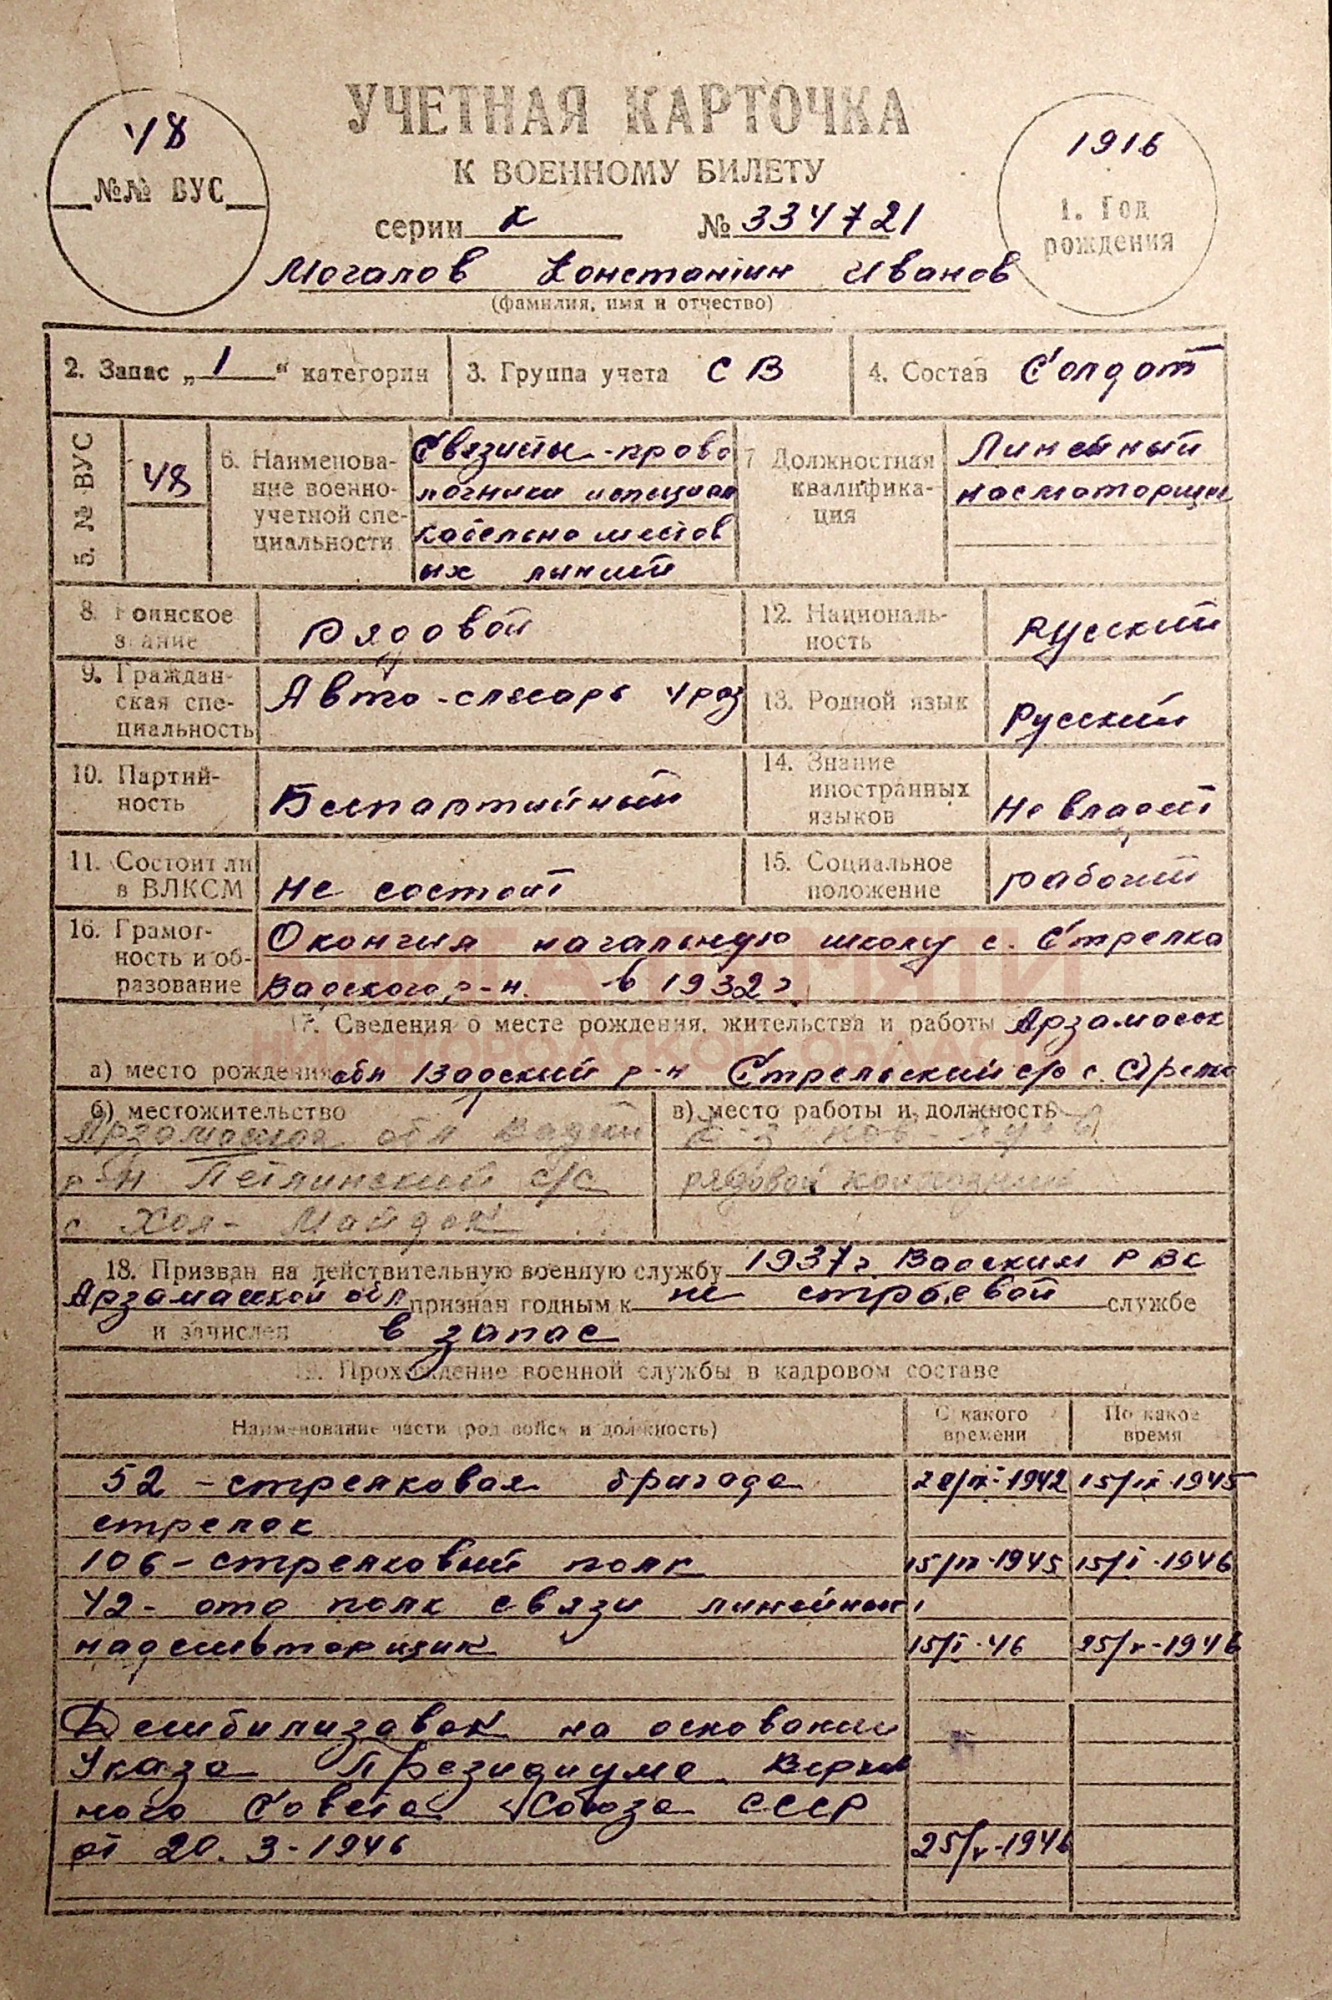 УЧЕТНАЯ КАРТОЧКА
К ВОЕННОМУ БИЛЕТУ
48
№№ ВУС
серии К № 334721
1916
1. Год рождения
Могалов Константин Иванов
(фамилия, имя и отчество)
2. Запас „1“ категории
3. Группа учета СВ
4. Состав Солдат
5. № ВУС
48
6. Наименова-
ние военно-
учетной спе-
циальности
Связисты-прово
лочники
кабельно шестов
ых линий
7 Должностная
квалифика-
ция
Линейный
насмоторщик
8. Воинское
звание
Рядовой
12. Националь-
ность
Русский
9. Граждан-
ская спе-
циальность
Авто-слесарь 4 раз
13. Родной язык
Русский
10. Партий-
ность
Беспартийный
14. Знание
иностранных
языков
Не владеет
11. Состоит ли
в ВЛКСМ
Не состоит
15. Социальное
положение
рабочий
16. Грамот-
ность и об-
разование
Окончил начальную школу с. Стрелка
Вадского р-н. в 1932 г
КНИГА ПАМЯТИ
НИЖЕГОРОДСКОЙ ОБЛАСТИ
17. Сведения о месте рождения, жительства и работы Арзамасск
а) место рождения обл Вадский р-н Стрельский с/с с.
б) местожительство
Арзамасской обл Вадский
р-н Петлинский с/с
с Хол-Майдан
в) место работы и должность
рядовой колхозник
18. Призван на действительную военную службу 1937 г. Вадским РВС
Арзамасской обл признан годным к не строевой службе
и зачислен в запас
19. Прохождение военной службы в кадровом составе
Наименование части (род войск и должность)
С какого
времени
По какое
время
52-стрелковая бригада 1942 1945
стрелок
106-стрелковый полк 1945 15/I-1946
42- ота полк связи линейный
надсмотрщик 15/I-46 25/V-1946
Демобилизован на основании
Указа Президиума Верхов
ного Совета Союза СССР
от 20.3-1946 25/V-1946